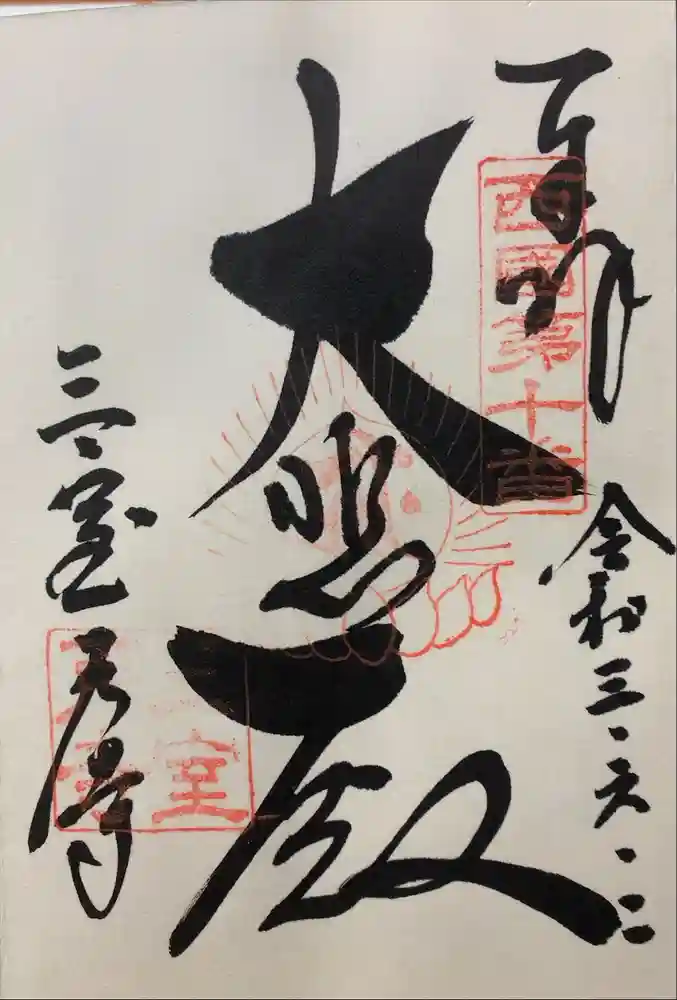 奉拝
西國第十番
令和三・六・二
大悲殿
三室戸寺